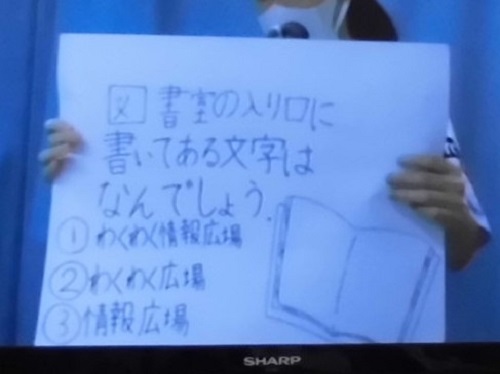 図書室の入り口に
書いてある文字は
なんでしょう.
①わくわく情報広場
②わくわく広場
③情報広場
SHARP